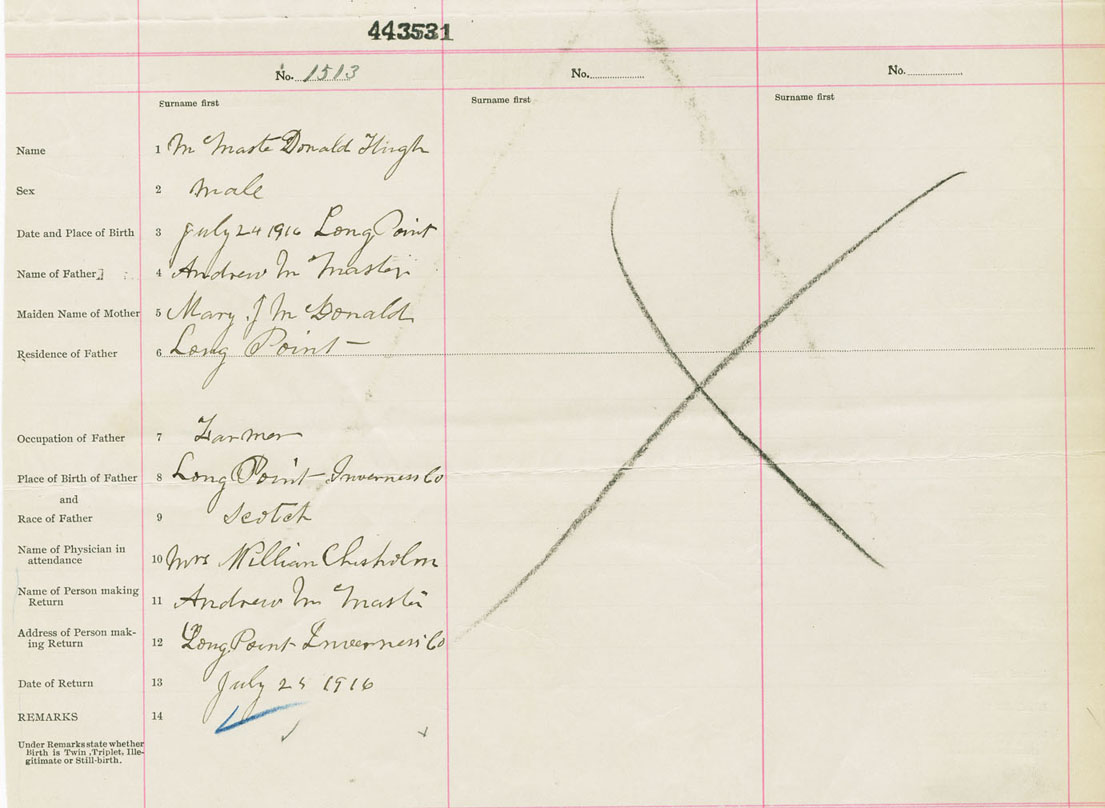 443531
No. 1513
No.
No.
Surname first
Surname first
Surname first
Name 1 McMaste Donald Hugh
Sex 2 male
Date and Place of Birth 3 July 24 1916 Long Point
Name of Father 4 Andrew Mc
Maiden Name of Mother 5 Mary J McDonald
Residence of Father 6 Long Point
Occupation of Father 7 Farmer
Place of Birth of Father 8 Long Point Inverness Co
and
Race of Father 9 Scotch
Name of Physician in
attendance 10 Mrs William Chisholm
Name of Person making
Return 11 Andrew Mc
Address of Person mak-
ing Return 12 Long Point Inverness Co
Date of Return 13 July 1916
REMARKS 14
Under Remarks state whether
Birth is Twin, Triplet, Ille-
gitimate or Still-birth.